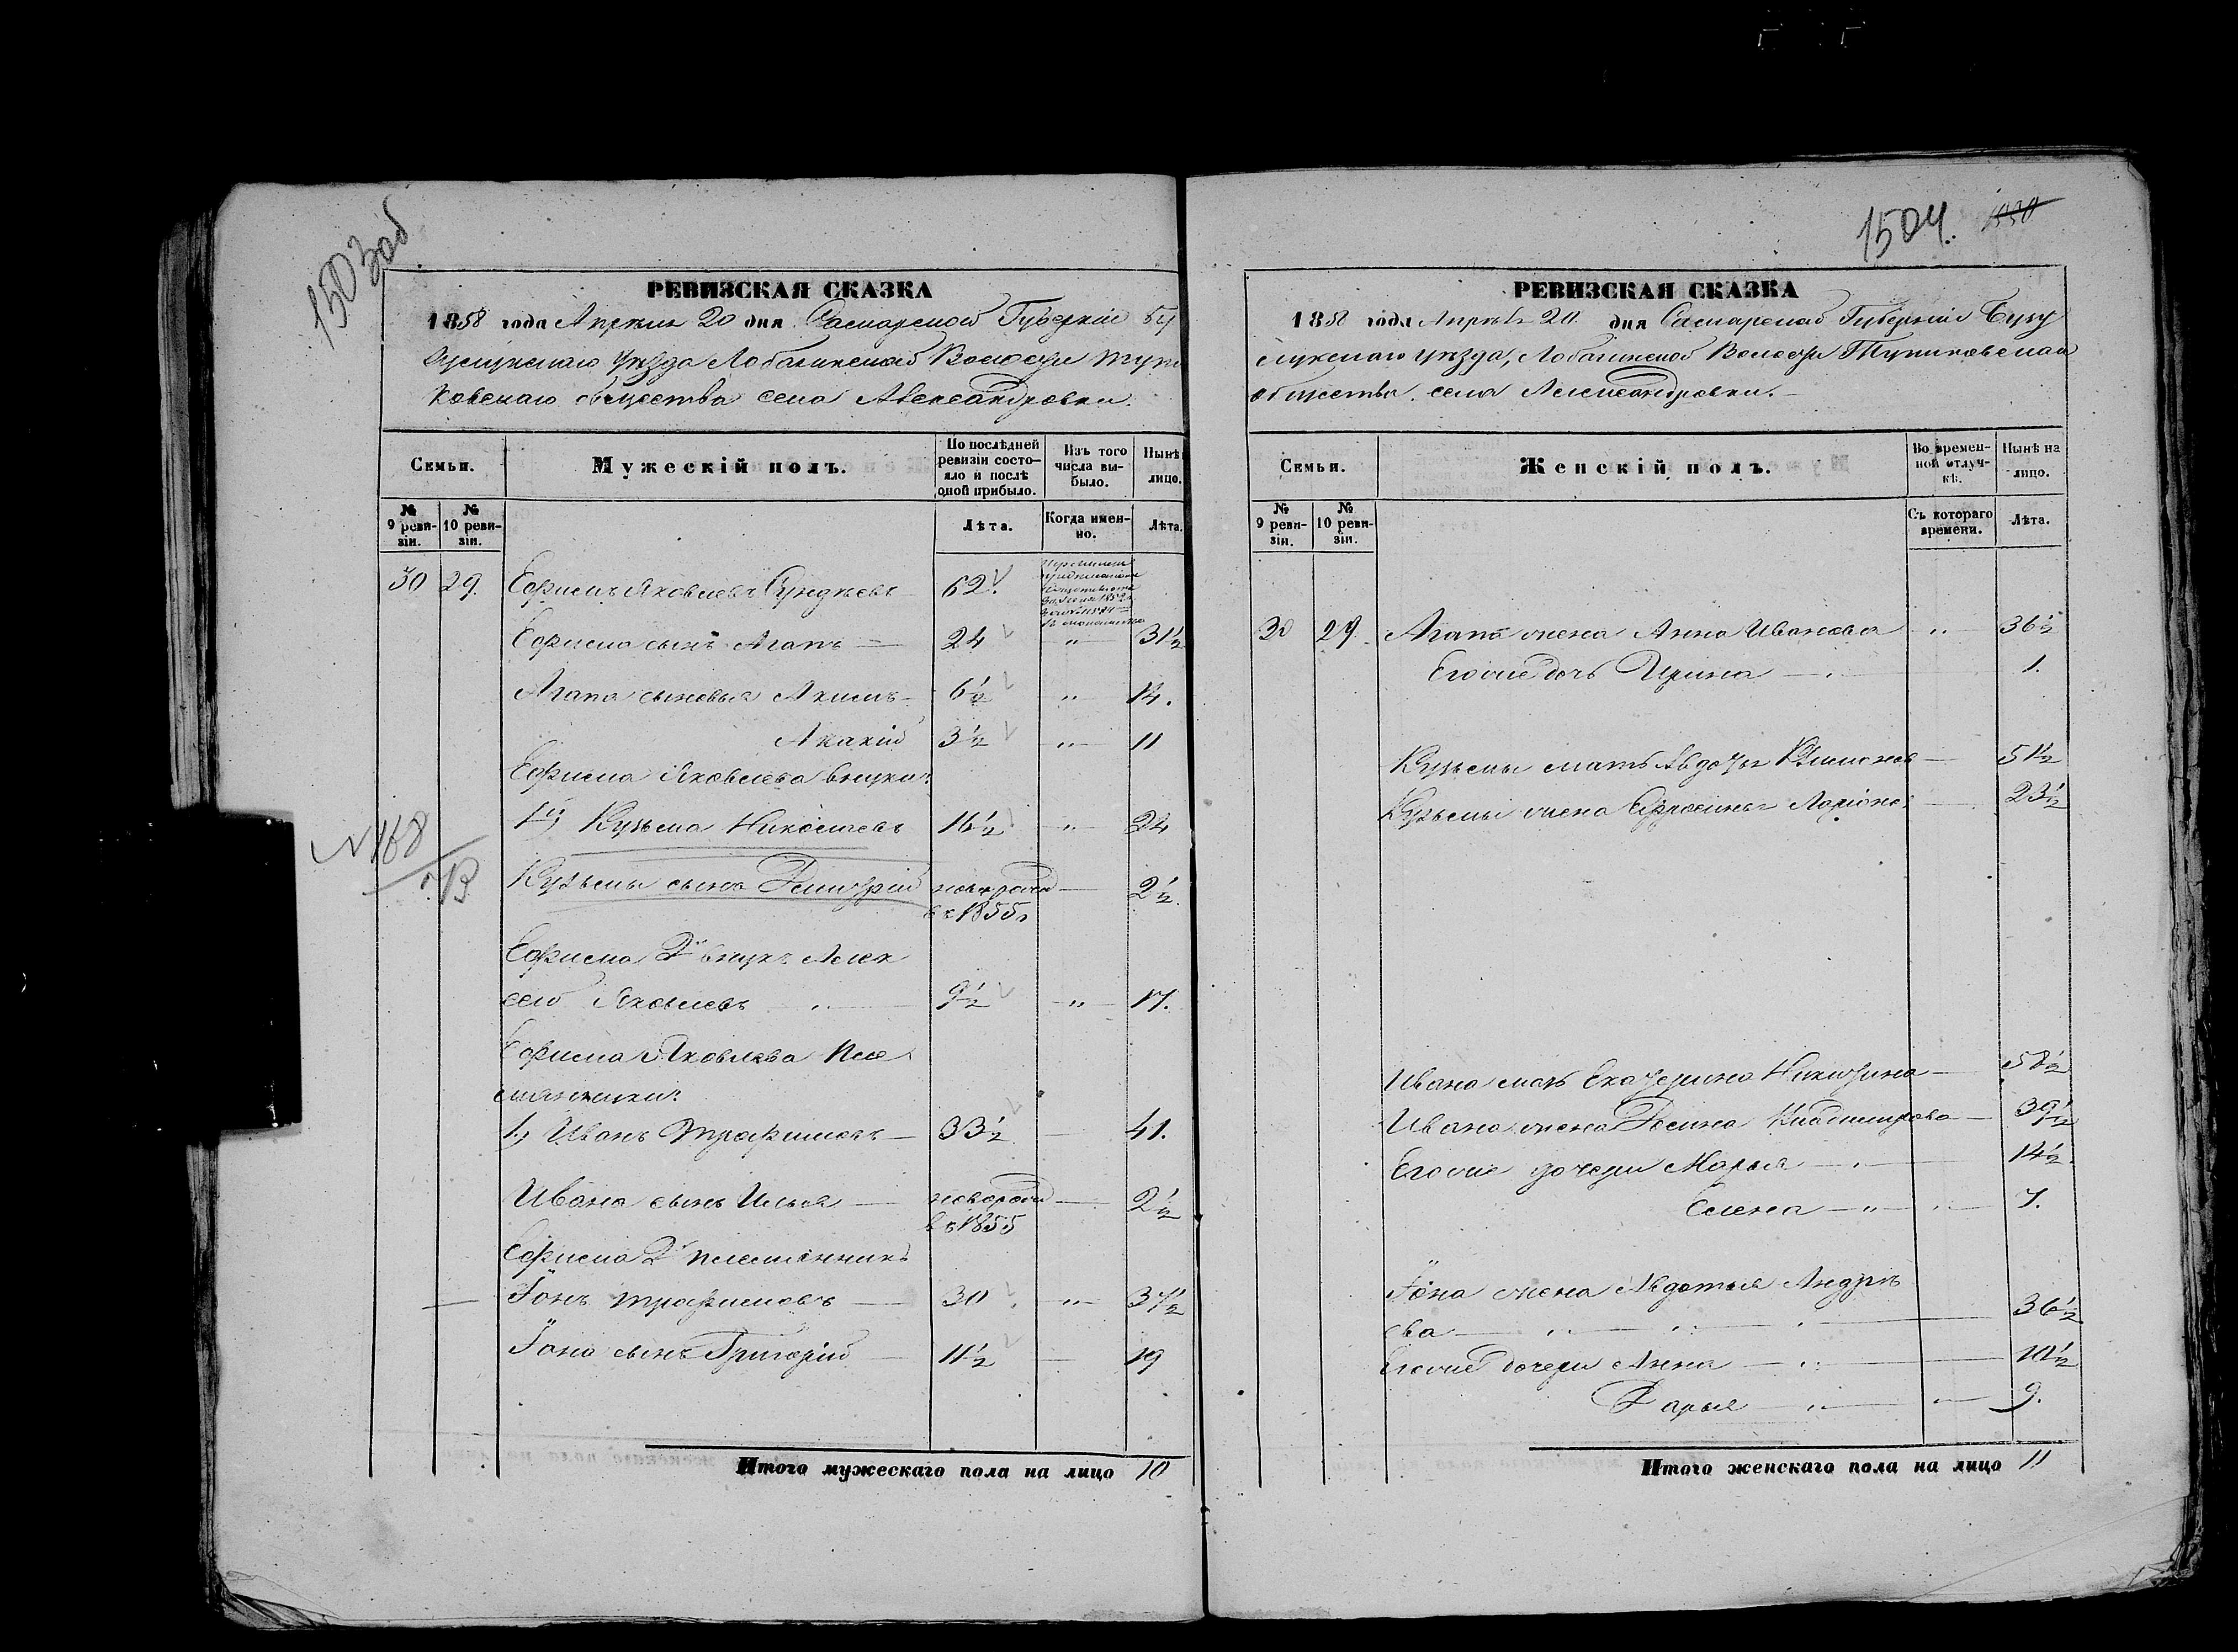 1503об
РЕВИЗСКАЯ СКАЗКА
1858 года Апреля 20 дня Самарской Губерніи Бу
зулукскаго уѣзда Лобазинской Волости Тупи
ковскаго общества села Александровки.
Семьи.
Мужескій полъ.
По послѣдней ревизіи состо-
яло и послѣ оной прибыло.
Изъ того числа вы-
было.
Нынѣ
лицо.
№ 9 реви-
зіи.
№ 10 реви-
зіи.
Лѣта.
Когда имен-
но.
Лѣта.
30 29. Ефимъ Яковлевъ 62.
Ефима сынъ Агапъ — 24 " 31½
Агапа сыновья Акимъ 6½ " 14.
Акакій 3½ " 11
Ефима Яковлева внуки:
1й, Кузьма Николаевъ 16½ " 24
№ 168
Кузьмы сынъ Дмитрій новорожд — 2½.
въ 1855г
Ефима 2й внукъ Алек
сей Яковлевъ " 9½ " 17.
Ефима Яковлева пле
мянники:
1., Иванъ Трофимовъ — 33½ — 41.
Ивана сынъ Илья — новорожд — 2½
въ 1855
Ефима 2й племянникъ
Іонъ Трофимовъ — 30 " 37½
Іона сынъ Григорій — 11½ — 19
Итого мужескаго пола на лицо 10
1504. 1530
РЕВИЗСКАЯ СКАЗКА
1858 года Апрѣля 20 дня Самарской Губерніи Бузу
лукскаго уѣзда, Лобазинской Волости Тупиковскаго
общества села Александровки.—
Семьи.
Женскій полъ.
Во времен-
ной отлуч-
кѣ.
Нынѣ на
лицо.
№ 9 реви-
зіи.
№ 10 реви-
зіи.
Съ котораго
времени.
Лѣта.
30 29. Агапа жена Анна Иванова " 36½
Его же дочь Ирина — " 1.
Кузьмы мать Авдотья — 51½
Кузьмы жена Ефросинья Ларіонов — 23½
Ивана мать Екатерина Никитина — 58½
Ивана жена Владимирова — 39½
Его же дочери Марья — " 14½.
Елена — " — " 7.
Іона жена Авдотья Андрѣ
ева — " — " — " 36½
Его же дочери Анна — " 10½
Дарья — " — " 9.
Итого женскаго пола на лицо 11